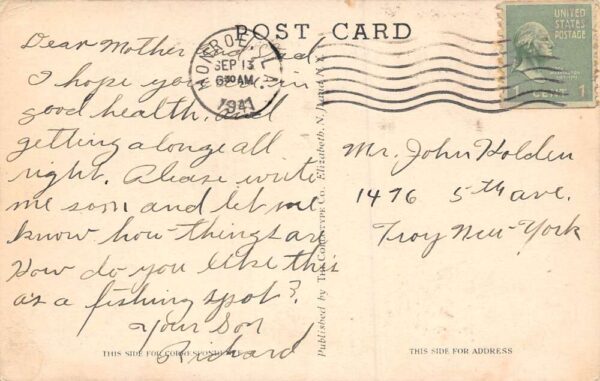 POST CARD
MONROE, LA.
SEP 13
630 AM
1941
UNITED
STATES
POSTAGE
WASHINGTON
1 CENT 1
Dear Mother and Dad
I hope you are in
good health, and
getting alonge all
right. Please write
me soon and let me
know how things are
How do you like this
as a fishing spot?
Your Son
Richard
Published by THE COLLOTYPE CO., Elizabeth, N. J. and N. Y.
Mr. John Holden
1476 5th ave.
Troy New York
THIS SIDE FOR CORRESPONDENCE
THIS SIDE FOR ADDRESS